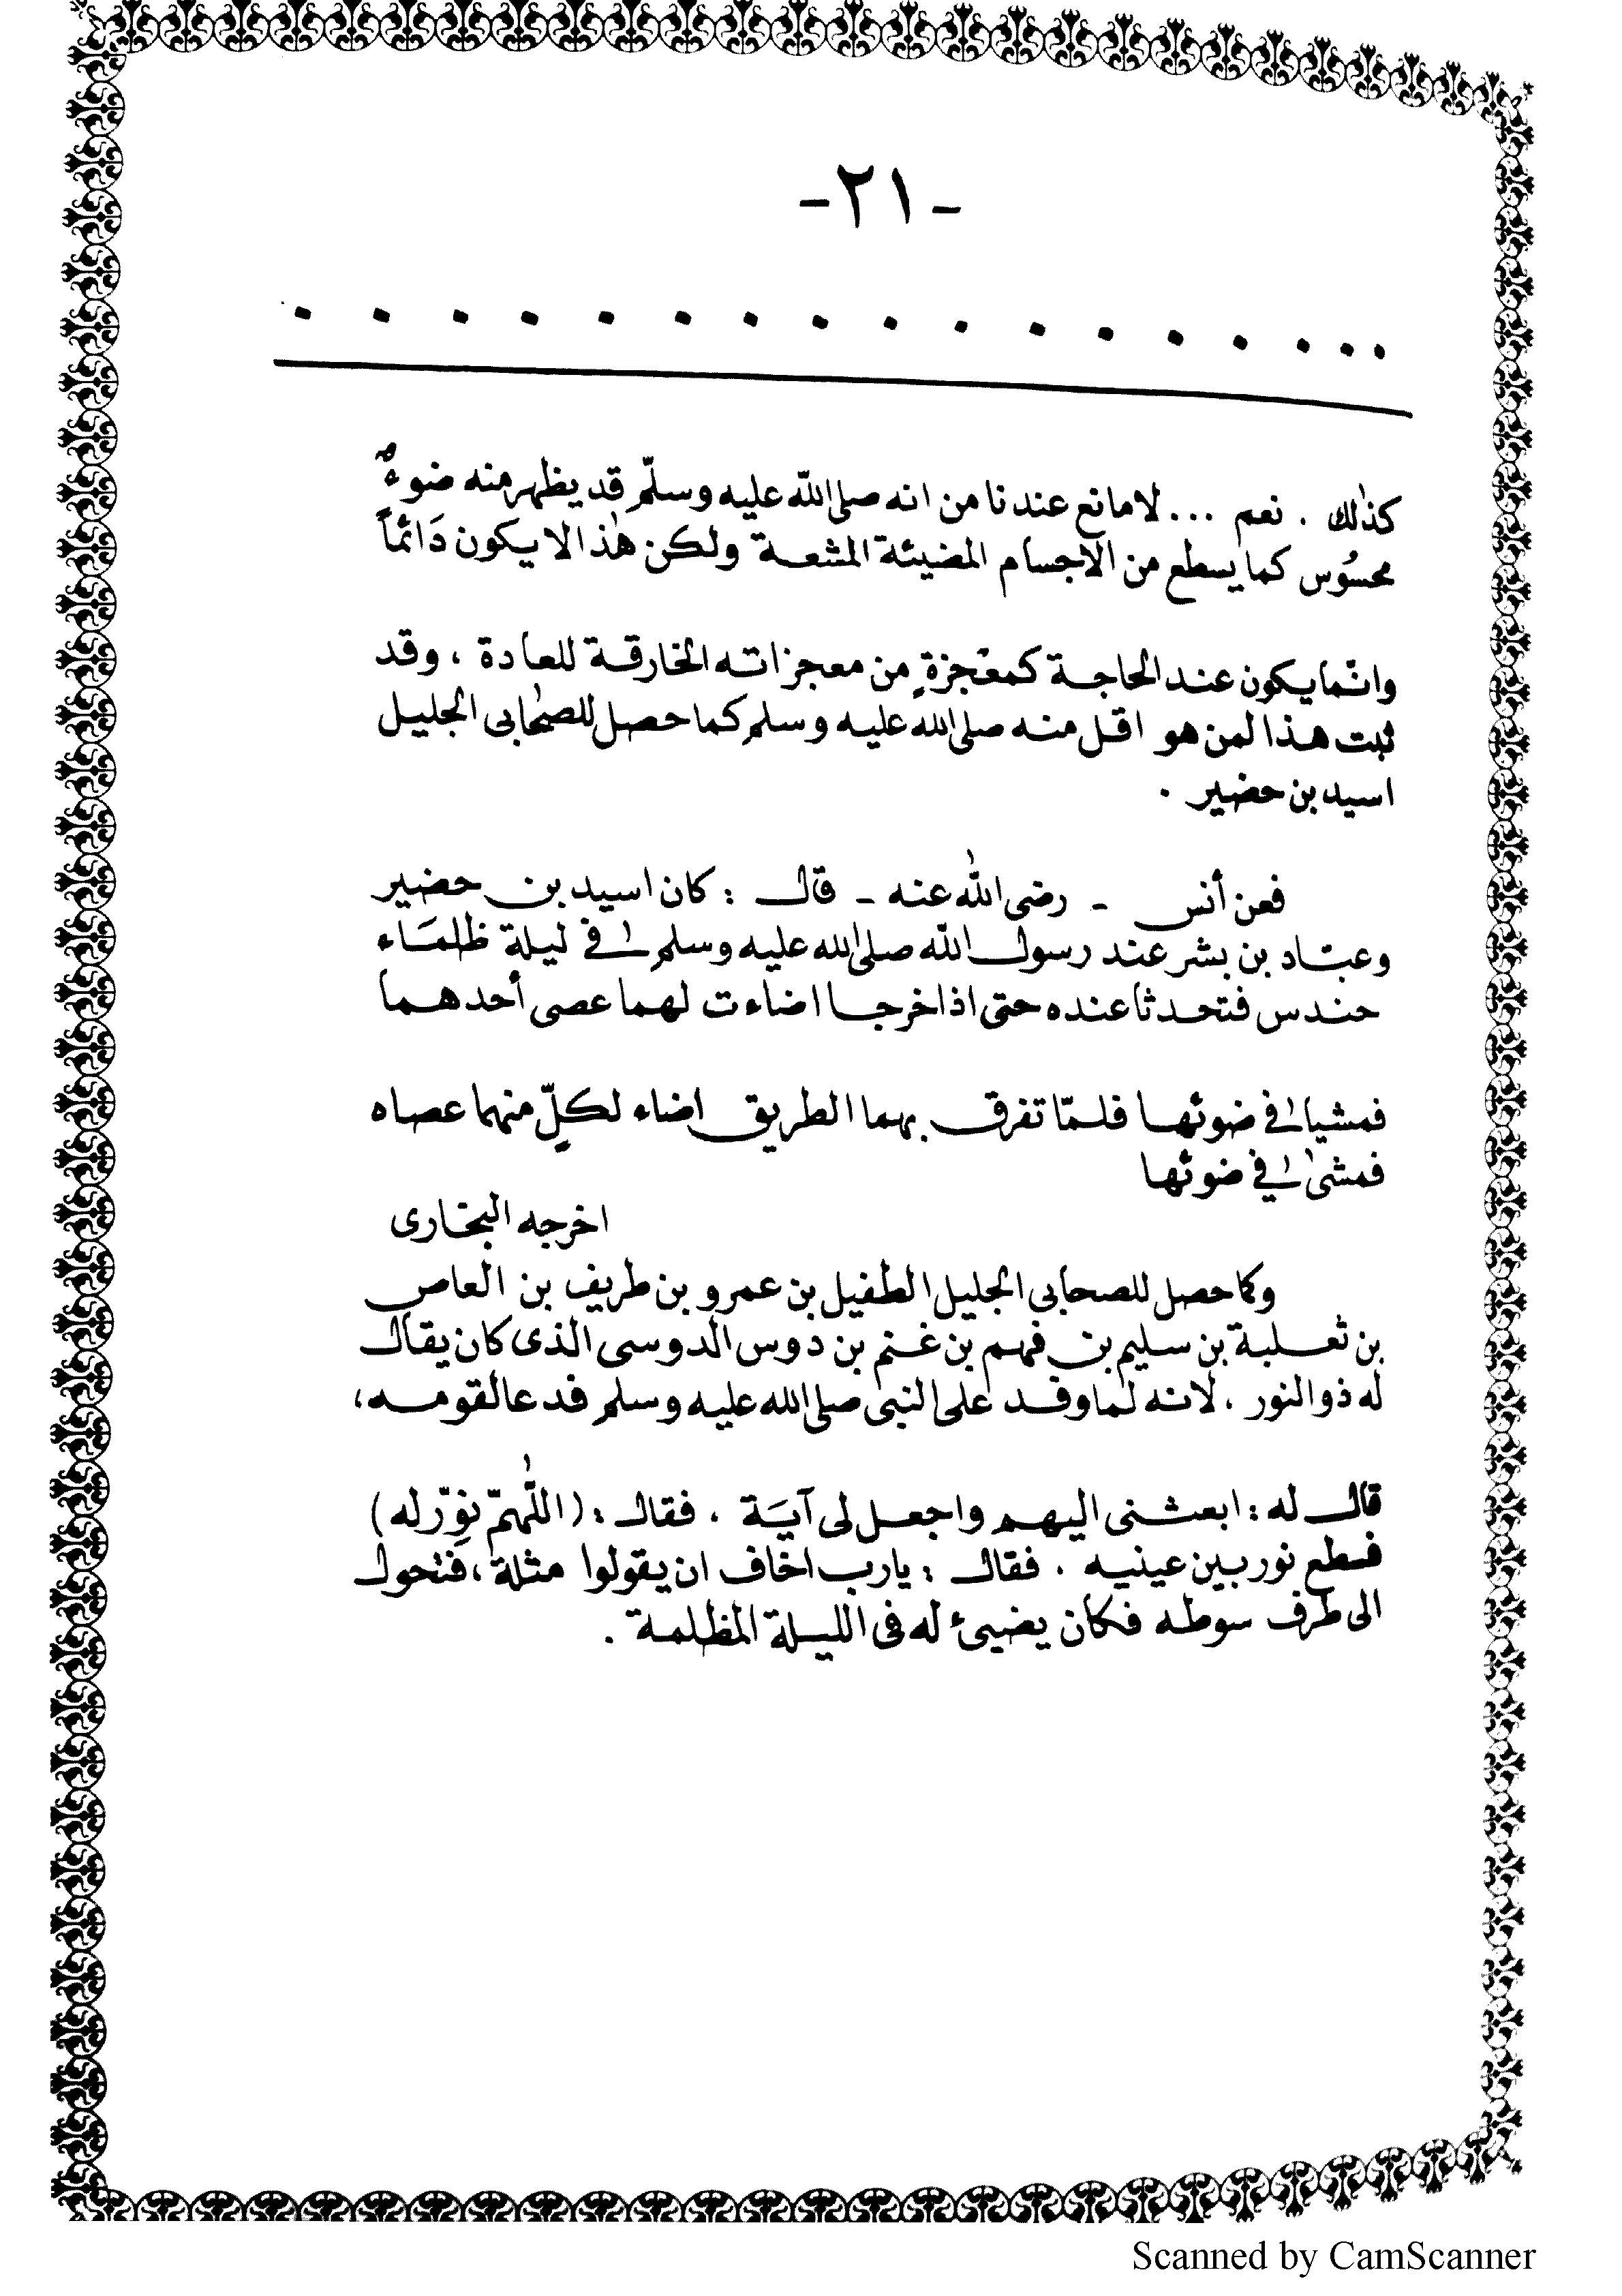 -٢١-
. . . . . . . . . . . . . . . . .
كذٰلك . نعم ... لا مانع عندنا من انه صلى الله عليه وسلّم قد يظهر منه ضوءٌ
محسُوس كما يسطع من الاجسام المضيئة المشعة ولكن هٰذا لا يكون دَائماً
وانّما يكون عند الحاجة كمعْجزةٍ من معجزاته الخارقة للعادة ، وقد
ثبت هذا لمن هو اقل منه صلى الله عليه وسلم كما حصل للصحابى الجليل
اسيد بن حضير .
فعن أنس - رضى الله عنه - قال : كان اسيد بن حضير
وعبّاد بن بشر عند رسول الله صلى الله عليه وسلم في ليلة ظلمَاء
حندس فتحدثا عنده حتى اذا خرجا اضاءت لهما عصى أحدهما
فمشيا في ضوئها فلمّا تفرق بهما الطريق اضاء لكلٍّ منهما عصاه
فمشىٰ في ضوئها
اخرجه البخارى
وكما حصل للصحابي الجليل الطفيل بن عمرو بن طريف بن العاص
بن ثعلبة بن سليم بن فهم بن غنم بن دوس الدوسى الذى كان يقال
له ذو النور ، لانه لما وفد على النبى صلى الله عليه وسلم فدعا لقومه ،
قال له : ابعثنى اليهم واجعل لى آيَة ، فقال : (اللّٰهمّ نوِّر له)
فسطع نور بين عينيه . فقال : يارب اخاف ان يقولوا مثلة ، فتحول
الى طرف سوطه فكان يضيئ له فى الليلة المظلمة .
Scanned by CamScanner